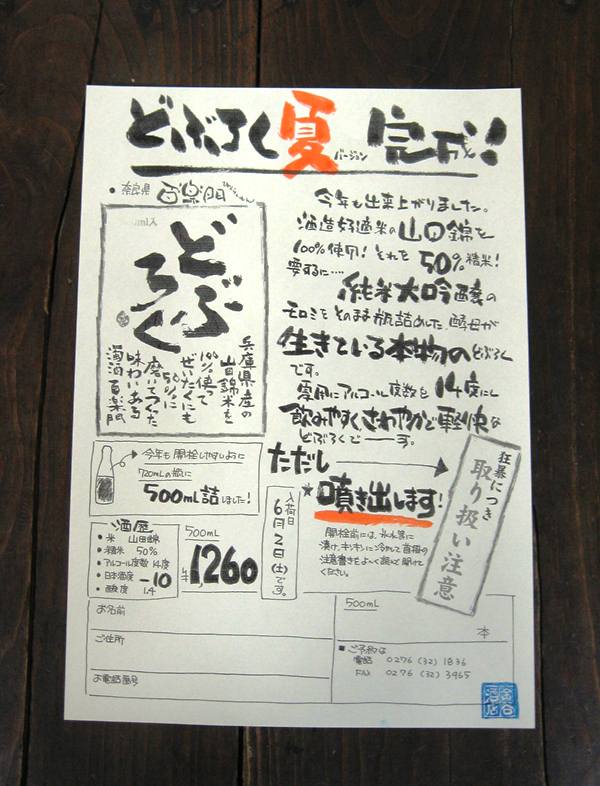 どぶろく夏バージョン 完成!
・奈良県 百楽門
どぶろく
兵庫県産の
山田錦米を
100%使って
ぜいたくにも
50%に
磨いてつくた
味わいある
濁酒 百楽門
今年も出来上がりました。
酒造好適米の山田錦を
100%使用!それを50%精米!
要するに・・・・
純米大吟醸の
モロミをそのまま瓶詰めした、酵母が
生きている本物のどぶろく
です。
夏用にアルコール度数を14度にし
飲みやすく、さわやかで軽快な
どぶろくでーーす。
ただし
★噴き出します!
狂暴につき
取り扱い注意
今年も開栓しやすいように
720mLの瓶に
500mL詰しました!
入荷日
6月2日(土)です。
開栓前には、氷水等に
漬け、キンキンに冷やして首掛の
注意書きをよ〜く読んで開けて
ください。
酒歴
・米 山田錦
・精米 50%
・アルコール度数 14度
・日本酒度 -10
・酸度 1.4
500mL
¥1260
お名前
ご住所
お電話番号
500mL
本
■ ご予約は
電話 0276(32)1836
FAX 0276(32)3965